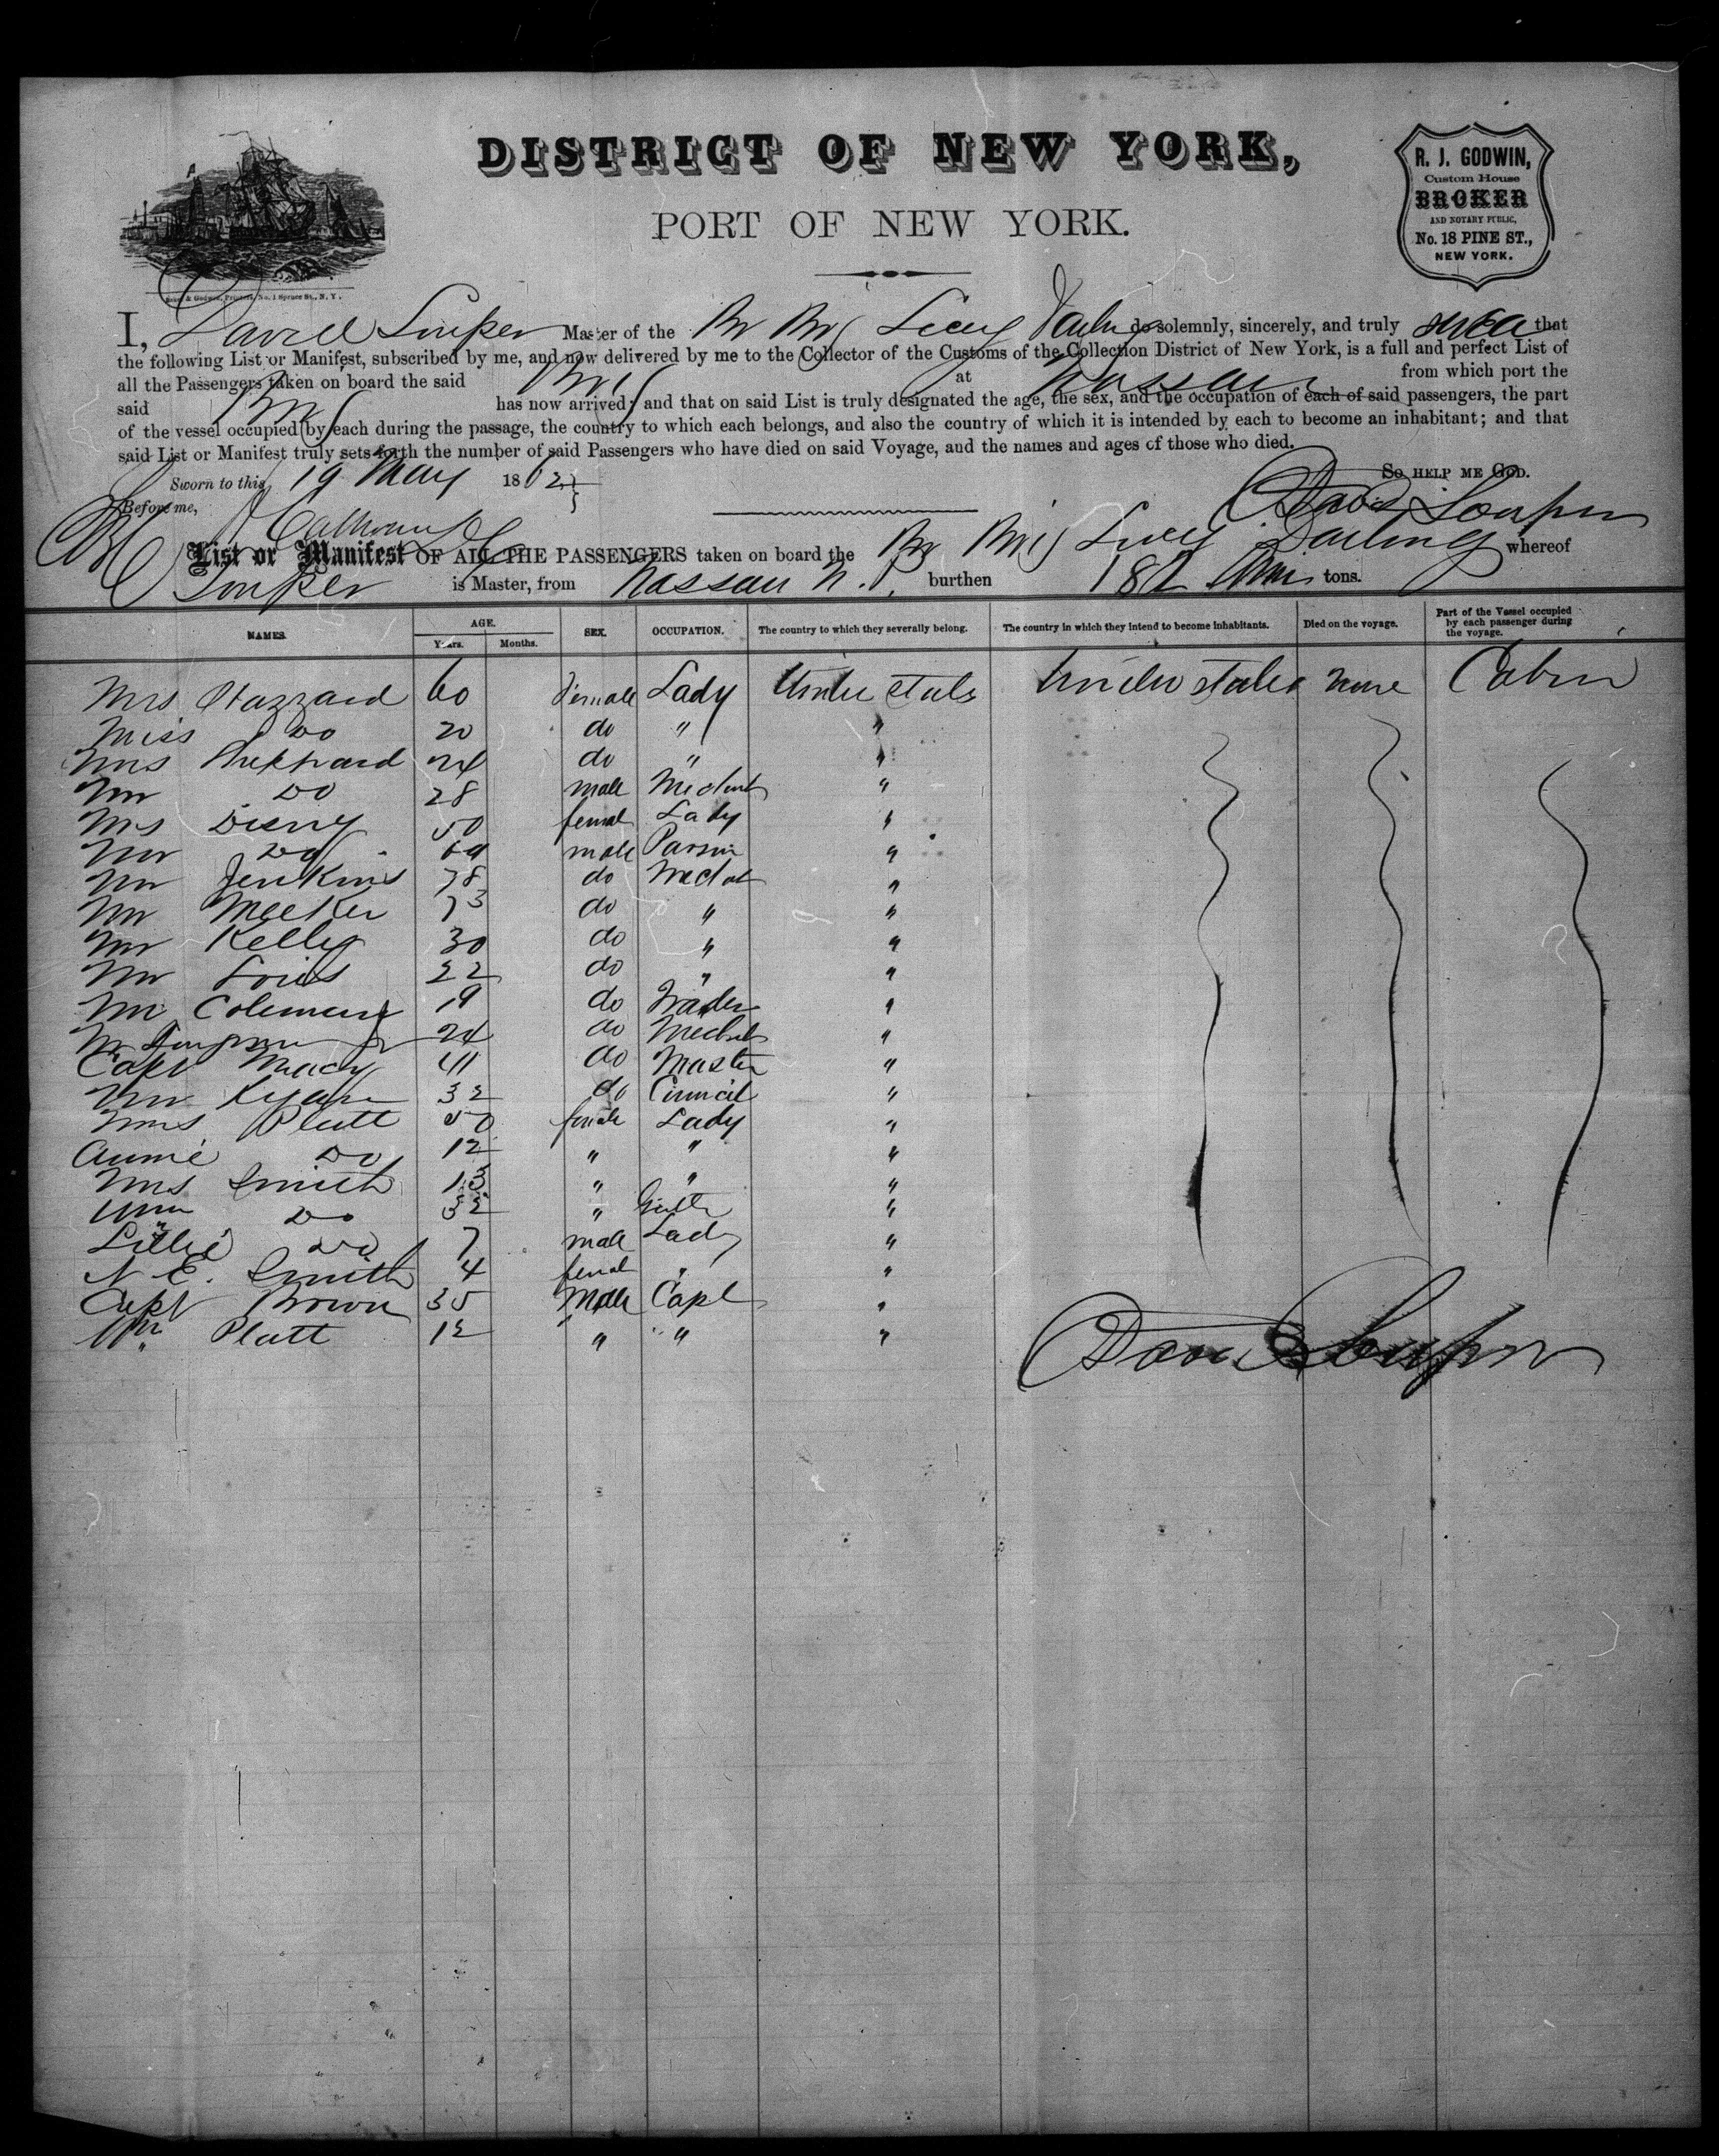 DISTRICT OF NEW YORK,
PORT OF NEW YORK.
R. J. GODWIN,
Custom House
BROKER
AND NOTARY PUBLIC,
No. 18 PINE ST.,
NEW YORK.
Baker & Godwin, Printers, No. 1 Spruce St., N. Y.
I, David Souper Master of the Br Brig Lucy Darling do solemnly, sincerely, and truly swear that
the following List or Manifest, subscribed by me, and now delivered by me to the Collector of the Customs of the Collection District of New York, is a full and perfect List of
all the Passengers taken on board the said Brig at Nassau from which port the
said Brig has now arrived; and that on said List is truly designated the age, the sex, and the occupation of each of said passengers, the part
of the vessel occupied by each during the passage, the country to which each belongs, and also the country of which it is intended by each to become an inhabitant; and that
said List or Manifest truly sets forth the number of said Passengers who have died on said Voyage, and the names and ages of those who died.
So HELP ME GOD.
Sworn to this 19 May 1862
Before me, Calhoun
David Souper
List or Manifest OF ALL THE PASSENGERS taken on board the Br Brig Lucy Darling whereof
Souper is Master, from Nassau N. P. burthen 182 tons.
NAMES. AGE. Years. Months. SEX. OCCUPATION. The country to which they severally belong. The country in which they intend to become inhabitants. Died on the voyage. Part of the Vessel occupied by each passenger during the voyage.
Mrs Hazzard 60 Female Lady United States United States None Cabin
Miss Do 20 do " "
Mrs Shephard 24 do " "
Mr Do 28 male "
Mrs Disny 50 female Lady "
Mr Do male "
Mr Jenkins 38 do "
Mr Meeker do " "
Mr Kelly 30 do " "
Mr 22 do " "
Mr Coleman 19 do Trader "
24 do "
Capt Macy 41 do Master "
Mr 32 do "
Mrs Platt 50 female Lady "
Annie Do 12 " " "
Mrs Smith 13 " " "
Do 32 " "
Lillie Do 7 male Lady "
N. E. Smith 4 femal " "
Capt Brown 35 Male Capt "
Wm Platt 12 " " "
David Souper